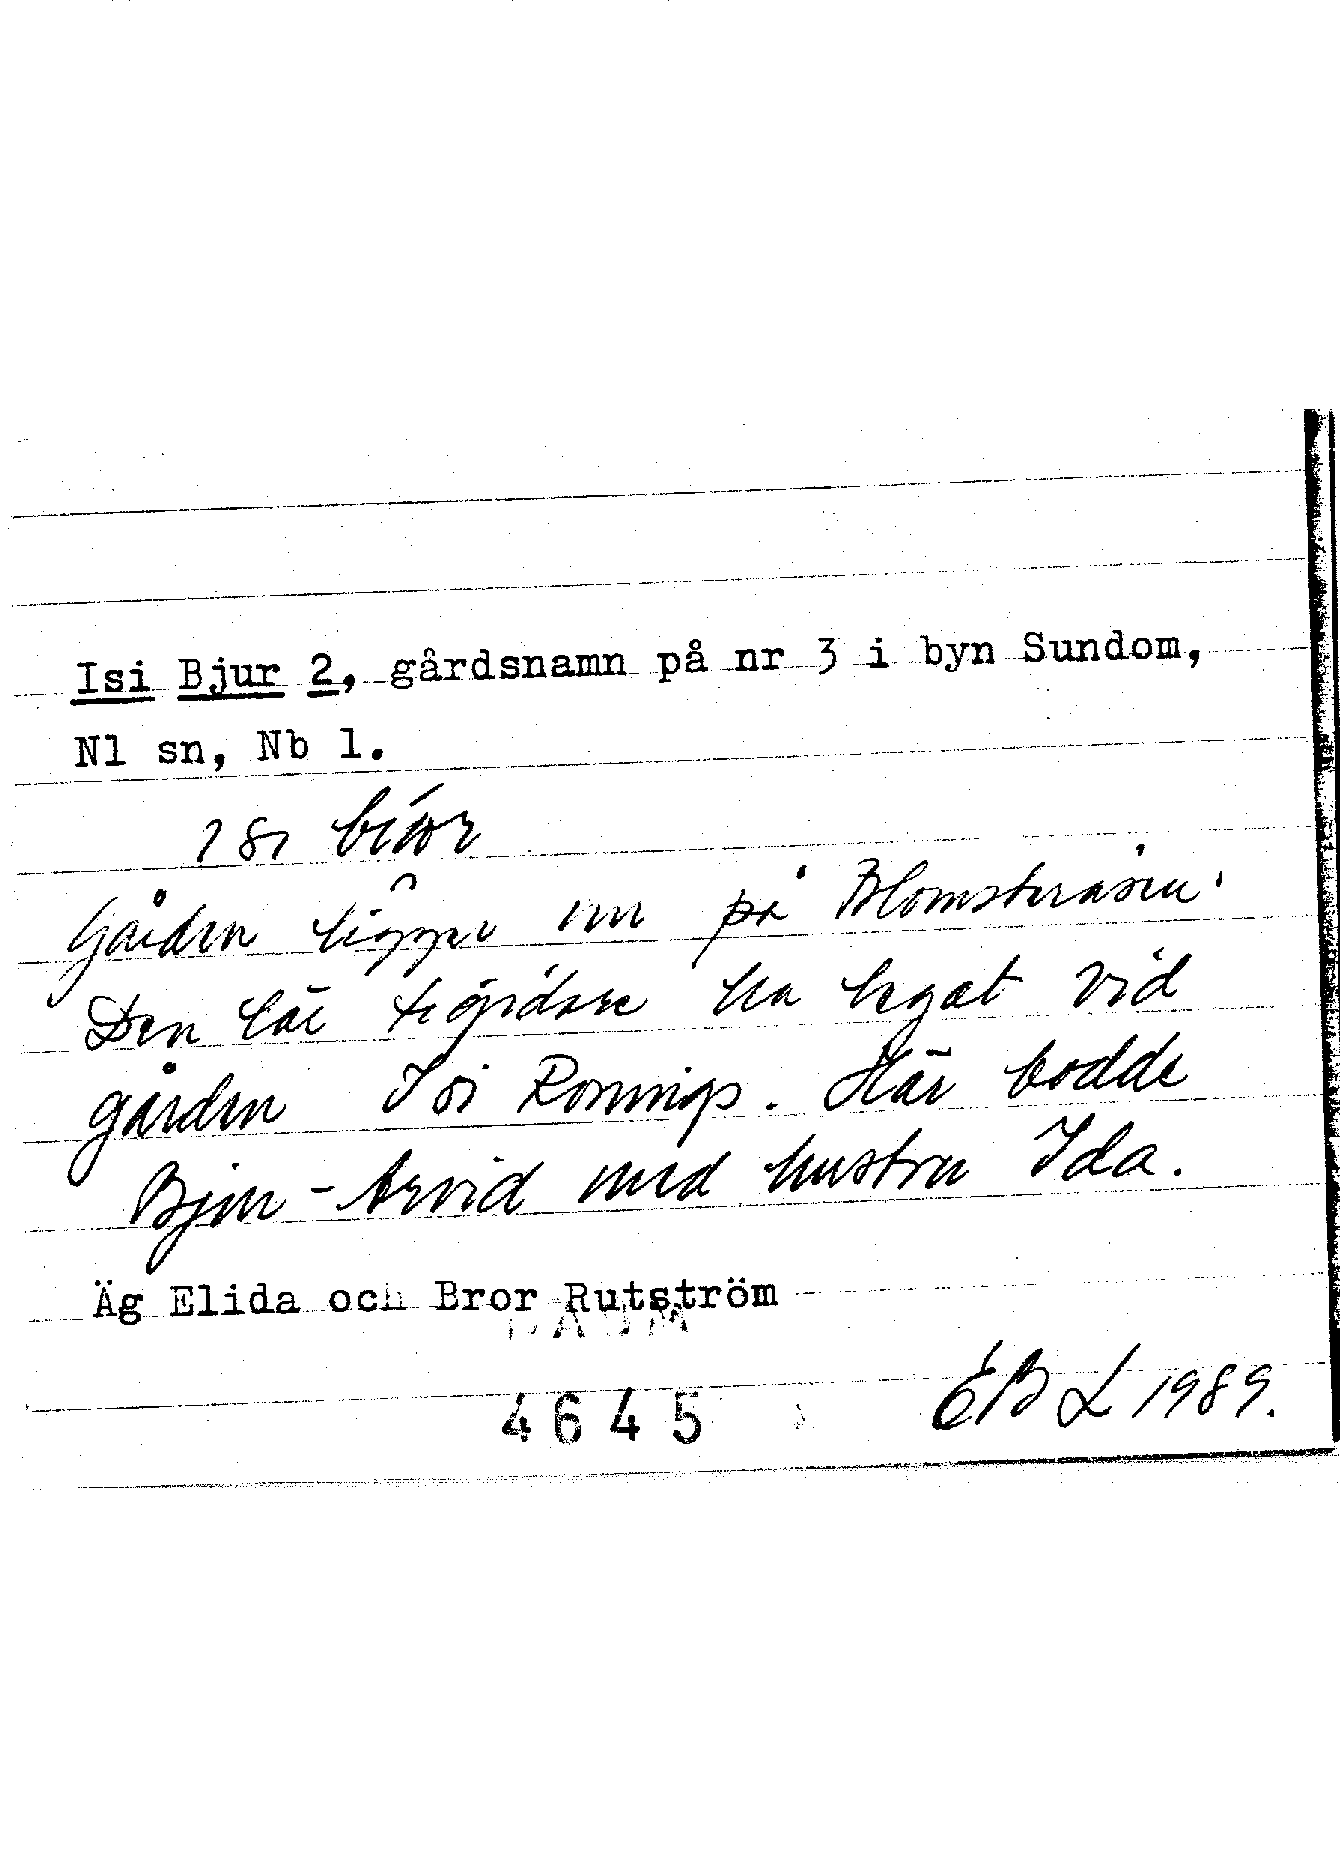 Isi Bjur 2, gårdsnamn på nr 3 i byn Sundom,
Nl sn, Nb l.
Gården ligger nu på Blomsteråsen.
Den lär tidigare ha legat vid
gården Isi Ronnigs. Här bodde
Bjur-Arvid med hustru Ida.
Äg Elida och Bror Rutström
DAUM
4645
EBL 1989.